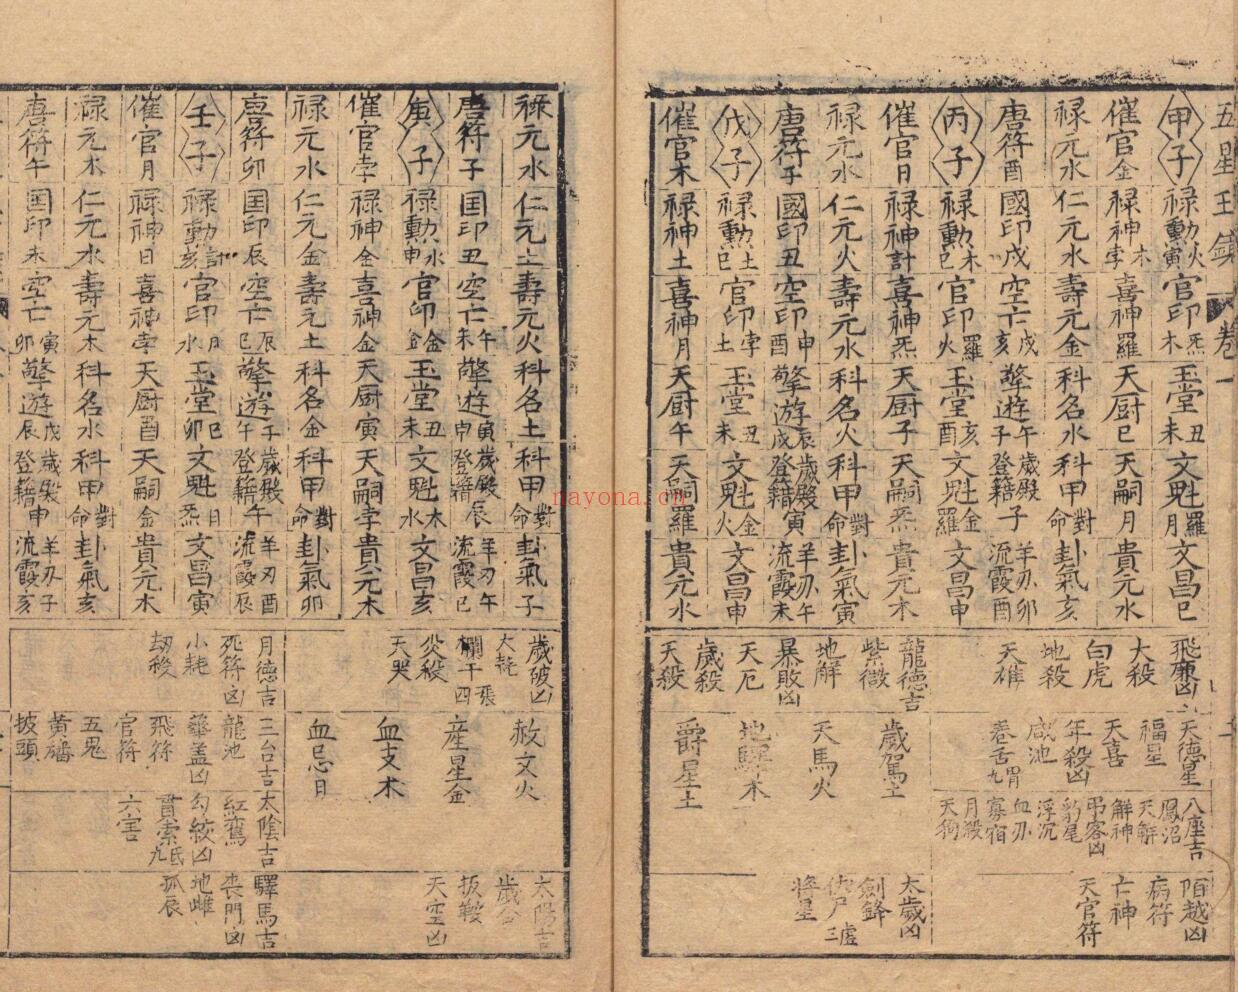 五星玉鏡 卷一
甲子 祿勳火寅 官印炁木 玉堂丑未 文魁羅月 文昌巳
催官金 祿神木孛 喜神羅 天廚巳 天嗣月 貴元水
祿元水 仁元水 壽元金 科名水 科甲對命 卦氣亥
唐符酉 國印戌 空亡戌亥 擎遊午子 歲殿登籍子 羊刃卯流霞酉
丙子 祿勳木巳 官印羅火 玉堂亥酉 文魁金羅 文昌申
催官日 祿神計 喜神炁 天廚子 天嗣炁 貴元木
祿元水 仁元火 壽元水 科名火 科甲對命 卦氣寅
唐符子 國印丑 空亡申酉 擎遊辰戌 歲殿登籍寅 羊刃午流霞未
戊子 祿勳土巳 官印孛土 玉堂丑未 文魁金火 文昌申
催官木 祿神土 喜神月 天廚午 天嗣羅 貴元水
飛廉凶 大殺 白虎 地殺 天雄
龍德吉 紫微 地解 暴敗凶 天厄 歲殺 天殺
天德星 福星 天喜 年殺凶 咸池 卷舌胃九
歲駕土 天馬火 地驛木 爵星土
八座吉 鳳沼 天解 解神 弔客凶 豹尾 浮沉 血刃 寡宿 月殺 天狗
陌越凶 病符 亡神 天官符
太歲凶 劍鋒 伏尸三虛 將星
祿元水 仁元土 壽元火 科名土 科甲對命 卦氣子
唐符子 国印丑 空亡午未 擎遊寅申 歲殿登籍辰 羊刃午流霞巳
庚子 祿勳水申 官印金金 玉堂丑未 文魁木水 文昌亥
催官孛 祿神金 喜神金 天廚寅 天嗣孛 貴元木
祿元水 仁元金 壽元土 科名金 科甲對命 卦氣卯
唐符卯 国印辰 空亡辰巳 擎遊子午 歲殿登籍午 羊刃酉流霞辰
壬子 祿勳計亥 官印月水 玉堂巳卯 文魁日炁 文昌寅
催官月 祿神日 喜神孛 天廚酉 天嗣金 貴元木
祿元木 仁元水 壽元木 科名水 科甲對命 卦氣亥
唐符午 国印未 空亡寅卯 擎遊戌辰 歲殿登籍申 羊刃子流霞亥
歲破凶 大耗 欄干四張 災殺 天哭
月德吉 死符凶 小耗 劫殺
赦文火 產星金 血支木 血忌日
三台吉 龍池 華盖凶 飛符 官符 五鬼 黄旛 披頭
太陰吉 紅鸞 勾絞凶 貫索氐九 六害
太陽吉 歲合 扳鞍 天空凶
驛馬吉 喪門凶 地雌 孤辰
nayona.cn